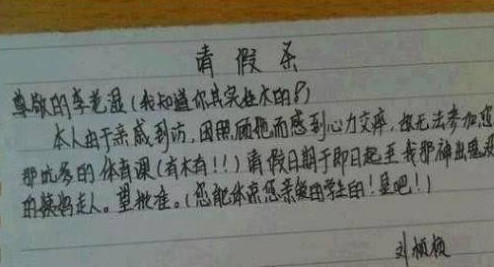 请假条
尊敬的李老湿(我知道你其实姓木的?)
本人由于亲戚到访,因照顾她而感到心力交瘁,故无法参加您
那坑爹的体育课(有木有!!)请假日期于即日起至我那神出鬼没
的姨妈走人。望批准。(您能体谅您亲爱的学生的!是吧!)
刘颖颖